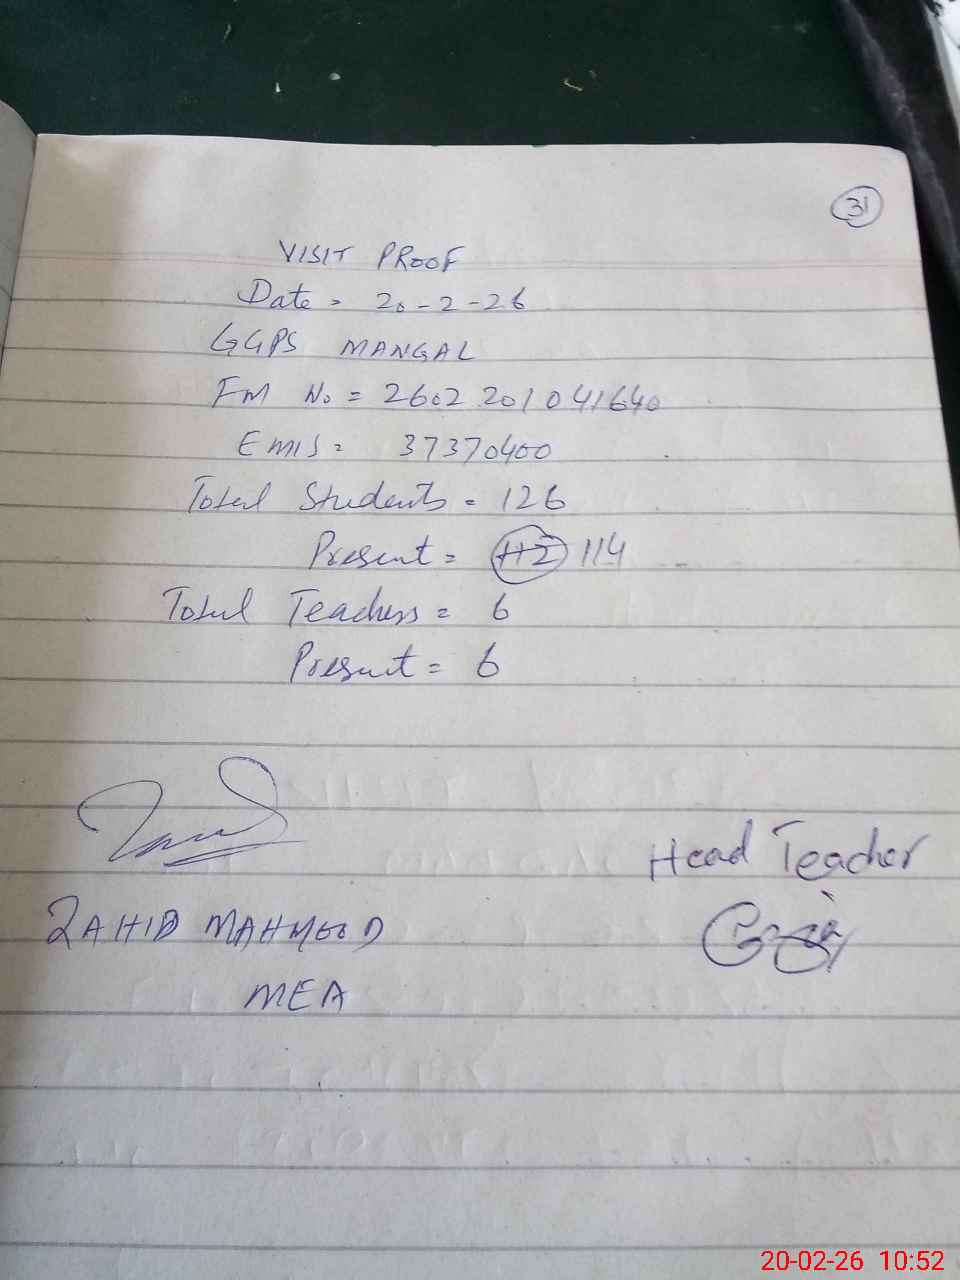 31
VISIT PROOF
Date = 20-2-26
GGPS MANGAL
FM No = 2602201041640
EMIS = 37370400
Total Students = 126
Present = 112 114
Total Teachers = 6
Present = 6
Head Teacher
ZAHID MAHMOOD
MEA
20-02-26 10:52